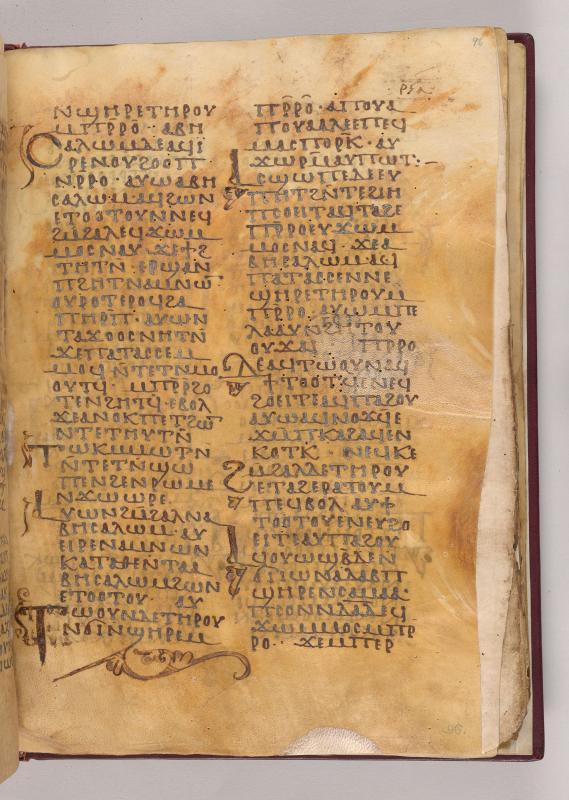 ⲛϣⲏⲣⲉⲧⲏⲣⲟⲩ
ⲙⲡⲣⲣⲟ· ⲁⲃⲏ
ⲥⲁⲗⲱⲙⲇⲉⲁϥⲓ
ⲣⲉⲛⲟⲩϩⲟⲟⲡ
ⲛⲣⲣⲟ· ⲁⲩⲱⲁⲃⲏ
ⲥⲁⲗⲱⲙⲁϥϩⲱⲛ
ⲉⲧⲟⲟⲧⲟⲩⲛⲛⲉϥ
ϩⲙϩⲁⲗⲉϥϫⲱⲙ
ⲙⲟⲥⲛⲁⲩ· ϫⲉϯϩ
ⲧⲏⲧⲛ· ⲉⲣϣⲁⲛ
ⲡϩⲏⲧⲛⲁⲙⲛⲱ
ⲟⲩⲣⲟⲧⲉⲣⲟϥϩⲁ
ⲡⲏⲣⲡ· ⲁⲩⲱⲛ
ⲧⲁϫⲟⲟⲥⲛⲏⲧⲛ
ϫⲉⲡⲁⲧⲁⲥⲥⲉⲙ
ⲙⲟϥ ⲛⲧⲉⲧⲛⲙⲟ
ⲟⲩⲧϥ· ⲙⲡⲣⲣϩⲟ
ⲧⲉⲛϩⲏⲧϥ· ⲉⲃⲟⲗ
ϫⲉⲁⲛⲟⲕⲡⲉⲧϩⲱ̅
ⲛⲧⲉⲧⲏⲩⲧⲛ̅
ⲧⲱⲕⲙⲙⲱⲧⲛ
ⲛⲧⲉⲧⲛϣⲱ
ⲡⲉⲛϩⲉⲛⲣⲱⲙⲉ
ⲛϫⲱⲱⲣⲉ
ⲁⲩⲱⲛϩⲙϩⲁⲗⲛⲁ
ⲃⲏⲥⲁⲗⲱⲙ· ⲁⲩ
ⲉⲓⲣⲉⲛⲁⲙⲛⲱⲛ
ⲕⲁⲧⲁⲑⲉⲛⲧⲁ
ⲃⲏⲥⲁⲗⲱⲙϩⲱⲛ
ⲉⲧⲟⲟⲧⲟⲩ· ⲁⲩ
ⲧⲱⲟⲩⲛⲇⲉⲧⲏⲣⲟⲩ
ⲛϭⲓⲛϣⲏⲣⲉⲙ
ⲡⲣ̅ⲣⲟ̅· ⲁⲡⲟⲩⲁ
ⲡⲟⲩⲁⲁⲗⲉⲉⲡⲉϥ
ⲙⲁⲥⲡⲟⲣ̅ⲕ· ⲁⲩ
ⲭⲱⲣⲙ̅ⲁⲩⲡⲱⲧ:–
ⲁⲥϣⲱⲡⲉⲇⲉⲉⲩ
ⲡⲏⲧϩⲛ̅ⲧⲉϩⲓⲏ
ⲡⲥⲟⲉⲓⲧⲁϥⲧⲁϩⲉ
ⲡⲣⲣⲟⲉⲩϫⲱⲙ
ⲙⲟⲥⲛⲁϥ· ϫⲉⲁ
ⲃⲏⲥⲁⲗⲱⲙⲁϥ
ⲡⲁⲧⲁⲥⲥⲉⲛⲛⲉ
ϣⲏⲣⲉⲧⲏⲣⲟⲩⲙ
ⲡⲣⲣⲟ· ⲁⲩⲱⲙⲡⲉ
ⲗⲁⲁⲩⲛϩⲏⲧⲟⲩ
ⲟⲩϫⲁⲓ ⲡⲣⲣⲟ
ⲇⲉⲁϥⲧⲱⲟⲩⲛⲁϥ
ϯⲧⲟⲟⲧϥⲉⲛⲉϥ
ϩⲟⲉⲓⲧⲉⲁϥⲡⲁϩⲟⲩ
ⲁⲩⲱⲁϥⲛⲟϫϥⲉ
ϫⲙⲡⲕⲁϩⲁϥⲉⲛ
ⲕⲟⲧⲕ· ⲛⲉϥⲕⲉ
ϩⲙϩⲁⲗⲇⲉⲧⲏⲣⲟⲩ
ⲉⲧⲁϩⲉⲣⲁⲧⲟⲩⲙ
ⲡⲉϥⲃⲟⲗ ⲁⲩϯ
ⲧⲟⲟⲧⲟⲩⲉⲛⲉⲩϩⲟ
ⲉⲓⲧⲉⲁⲩⲡⲁϩⲟⲩ
ⲁϥⲟⲩⲱϣⲃⲇⲉⲛ
ϭⲓⲓⲱⲛⲁⲇⲁⲃⲡ
ϣⲏⲣⲉⲛⲥⲁⲙⲁⲁ·
ⲡⲥⲟⲛⲛⲇⲁⲇⲉϥ
ϫⲱⲙⲙⲟⲥⲙⲡⲣ
ⲣⲟ· ϫⲉⲙⲡⲉⲣ